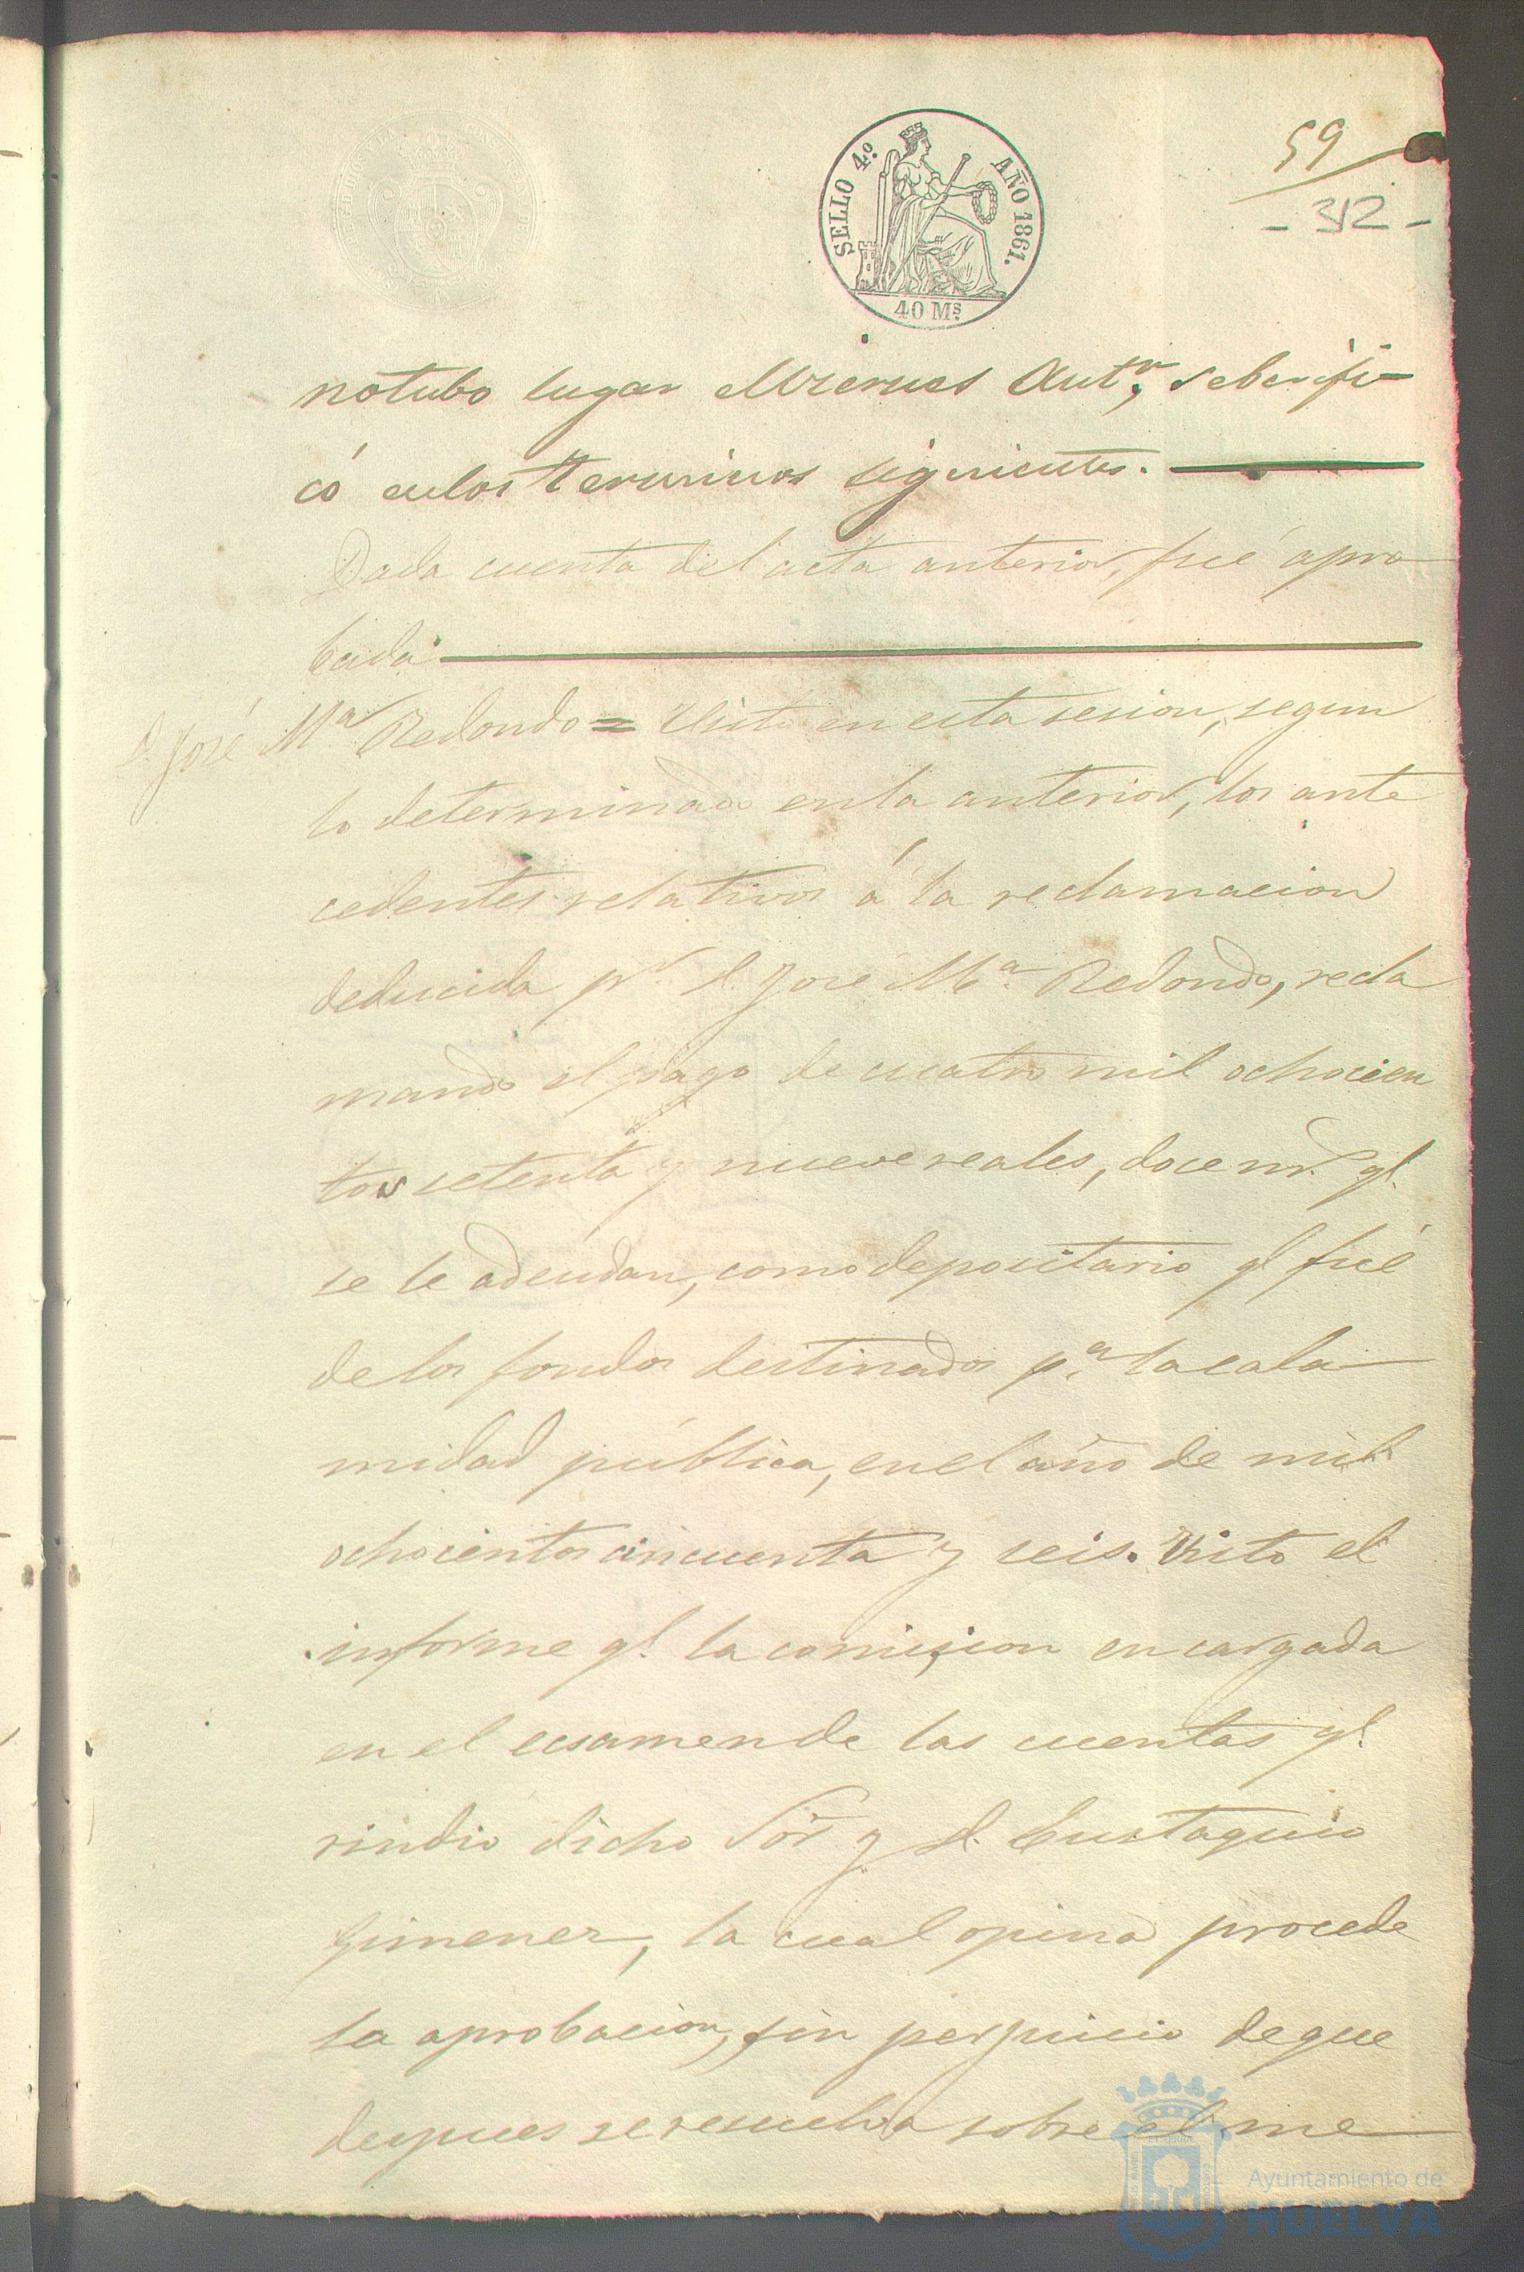 SELLO 4.º AÑO 1861.
40 Ms.
59
- 312 -
no tubo lugar el Viernes Antr., se berifi-
có en los terminos siguientes.
Dada cuenta del acta anterior, fué apro
bada.
D. José Mª Redondo = Visto en esta sesion, segun
lo determinado en la anterior, los ante
cedentes relativos á la reclamacion
deducida pr. D. José Mª. Redondo, recla
mando el pago de cuatro mil ochocien
tos setenta y nueve reales, doce mr. q.
se le adeudan, como depositario q. fué
de los fondos destinados pª. la cala
midad pública, en el año de mil
ochocientos cincuenta y seis. Visto el
informe q. la comision encargada
en el ecsamen de las cuentas q.
rindio dicho Sor. y D. Eustaquio
Gimenez, la cual opina procede
la aprobacion, sin perjuicio de que
despues se resuelva sobre el me
Ayuntamiento de
HUELVA